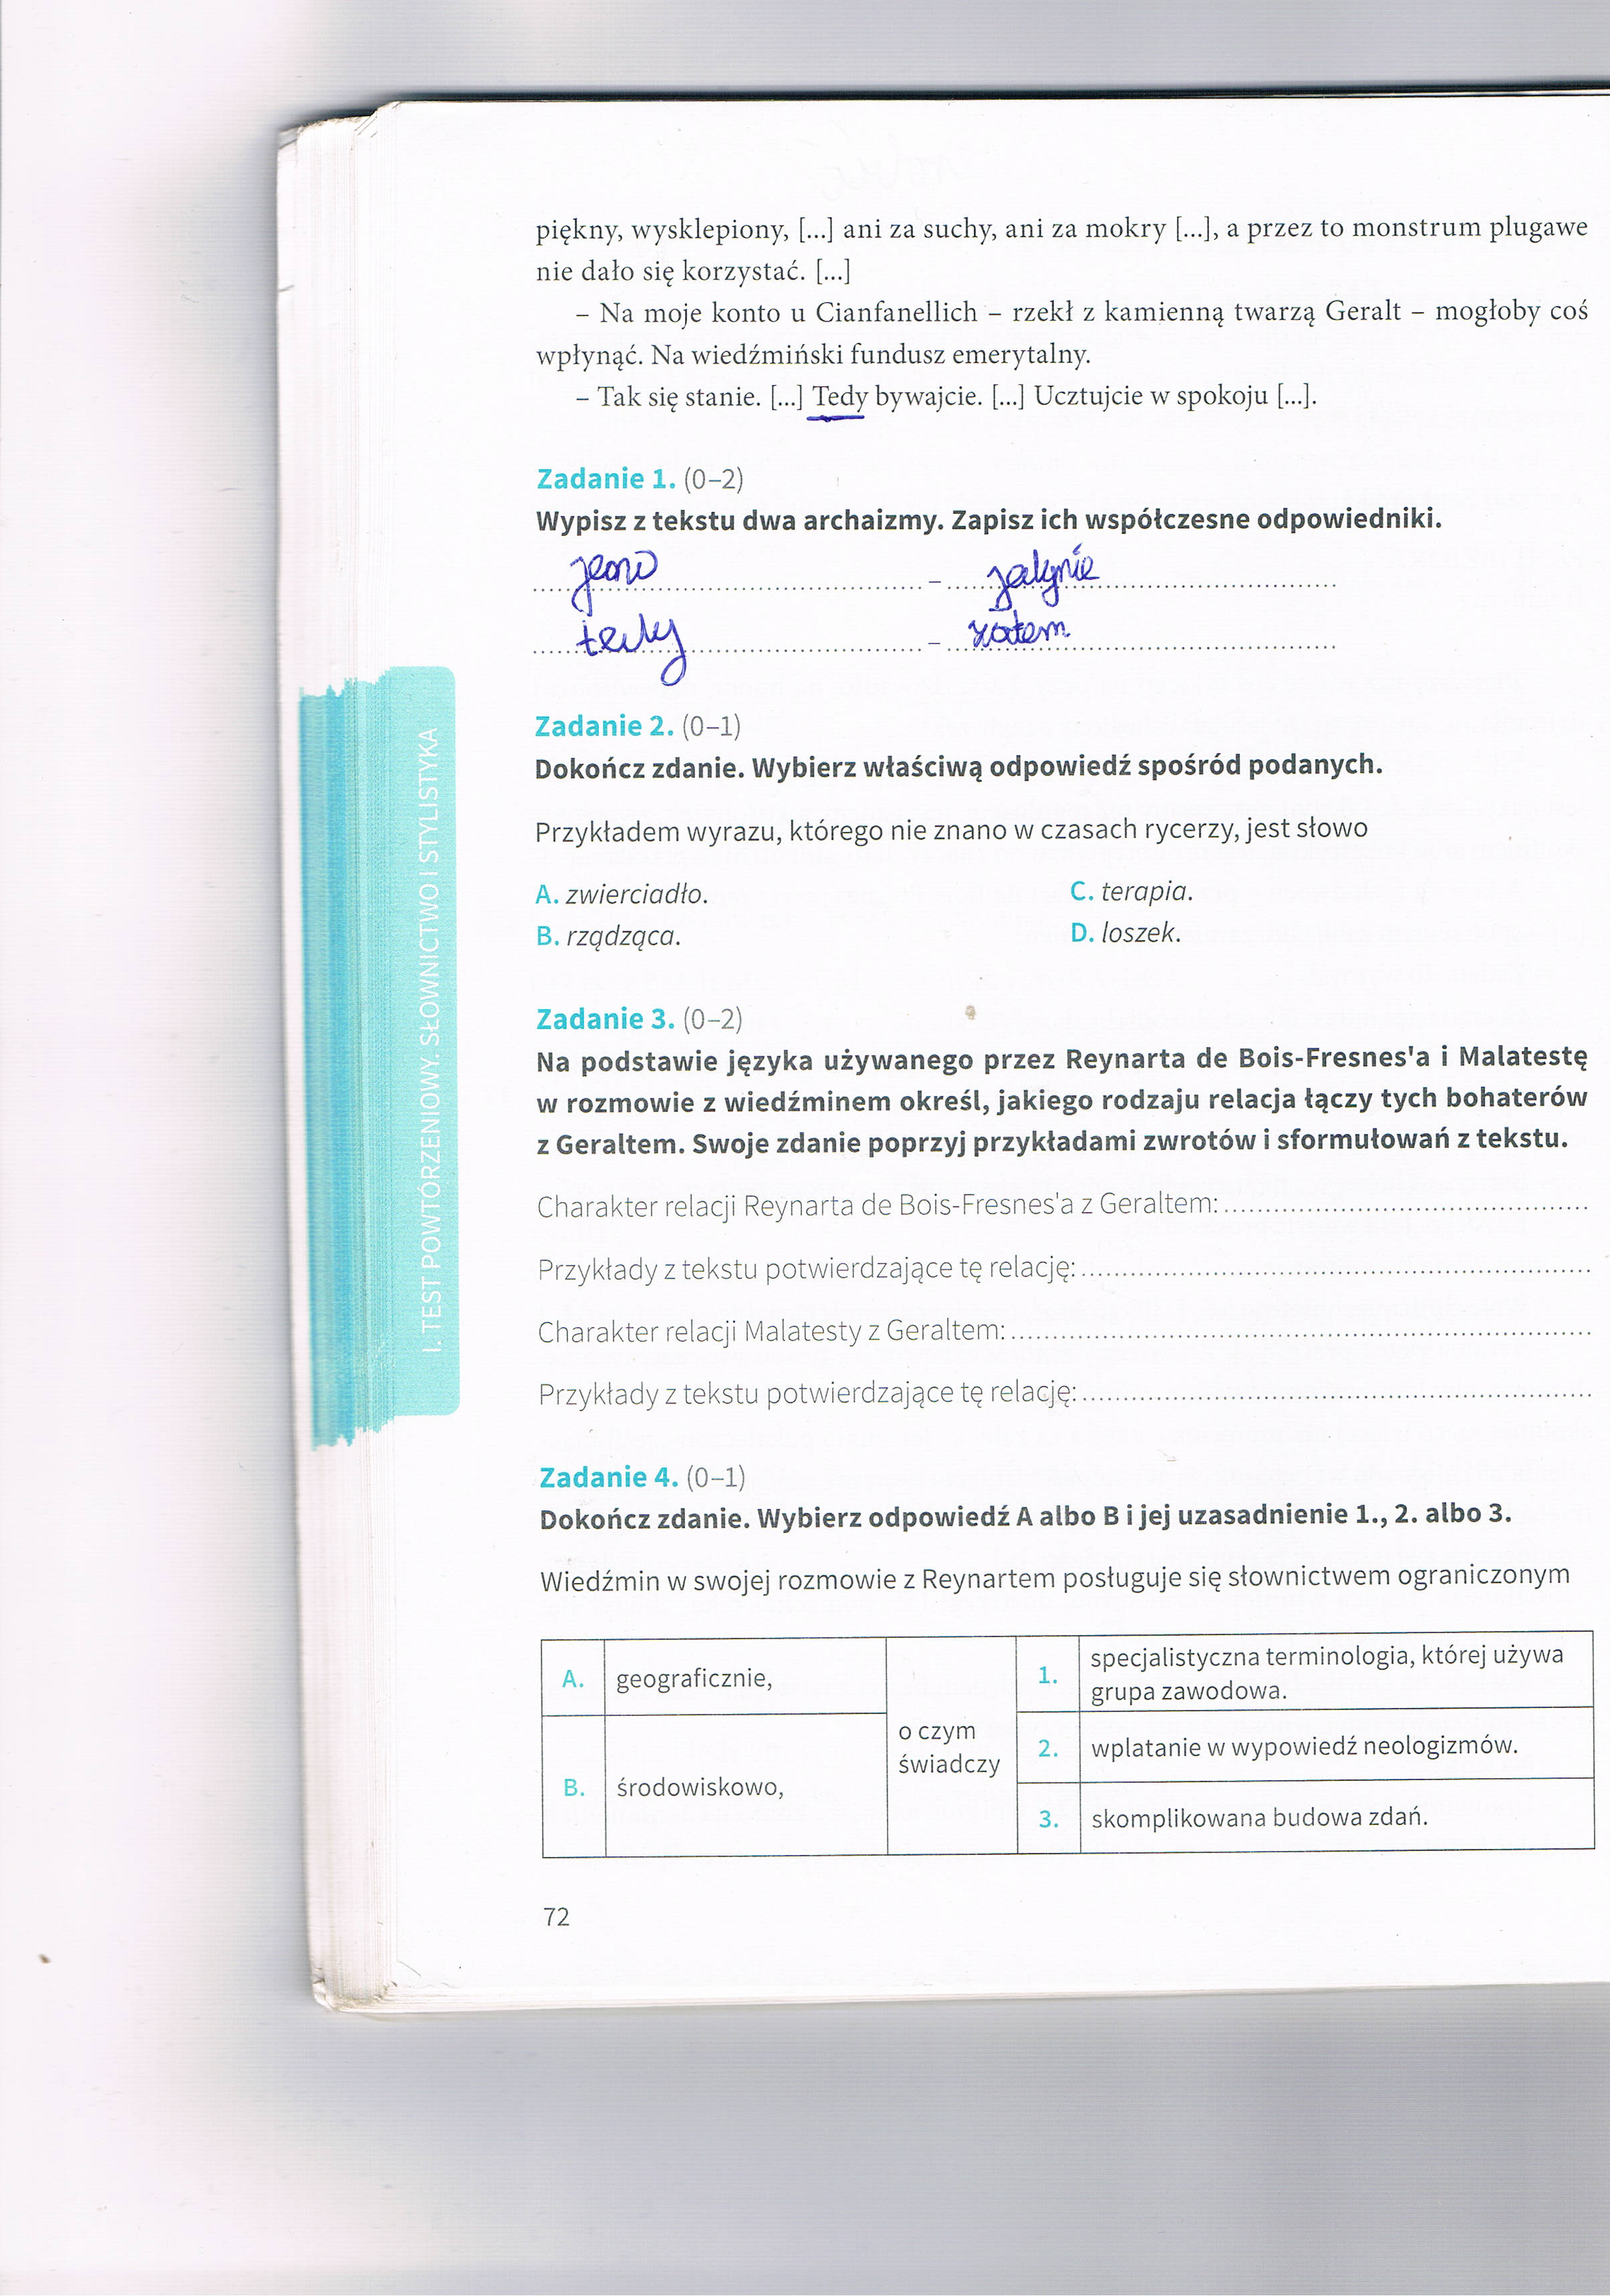 piękny, wysklepiony, [...] ani za suchy, ani za mokry [...], a przez to monstrum plugawe
nie dało się korzystać. [...]
– Na moje konto u Cianfanellich – rzekł z kamienną twarzą Geralt – mogłoby coś
wpłynąć. Na wiedźmiński fundusz emerytalny.
– Tak się stanie. [...] Tedy bywajcie. [...] Ucztujcie w spokoju [...].
Zadanie 1. (0–2)
Wypisz z tekstu dwa archaizmy. Zapisz ich współczesne odpowiedniki.
jeno – jedynie
tedy – zatem
Zadanie 2. (0–1)
Dokończ zdanie. Wybierz właściwą odpowiedź spośród podanych.
Przykładem wyrazu, którego nie znano w czasach rycerzy, jest słowo
A. zwierciadło. C. terapia.
B. rządzące. D. loszek.
Zadanie 3. (0–2)
Na podstawie języka używanego przez Reynarta de Bois-Fresnes'a i Malatestę
w rozmowie z wiedźminem określ, jakiego rodzaju relacja łączy tych bohaterów
z Geraltem. Swoje zdanie poprzyj przykładami zwrotów i sformułowań z tekstu.
Charakter relacji Reynarta de Bois-Fresnes'a z Geraltem:
Przykłady z tekstu potwierdzające tę relację:
Charakter relacji Malatesty z Geraltem:
Przykłady z tekstu potwierdzające tę relację:
Zadanie 4. (0–1)
Dokończ zdanie. Wybierz odpowiedź A albo B i jej uzasadnienie 1., 2. albo 3.
Wiedźmin w swojej rozmowie z Reynartem posługuje się słownictwem ograniczonym
A. geograficznie,
B. środowiskowo,
o czym
świadczy
1. specjalistyczna terminologia, której używa
grupa zawodowa.
2. wplatanie w wypowiedź neologizmów.
3. skomplikowana budowa zdań.
72
I. TEST POWTÓRZENIOWY. SŁOWNICTWO I STYLISTYKA